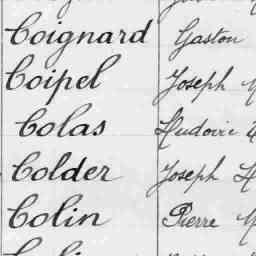 Coignard Gaston
Coipel Joseph
Colas Ludovic
Colder Joseph
Colin Pierre